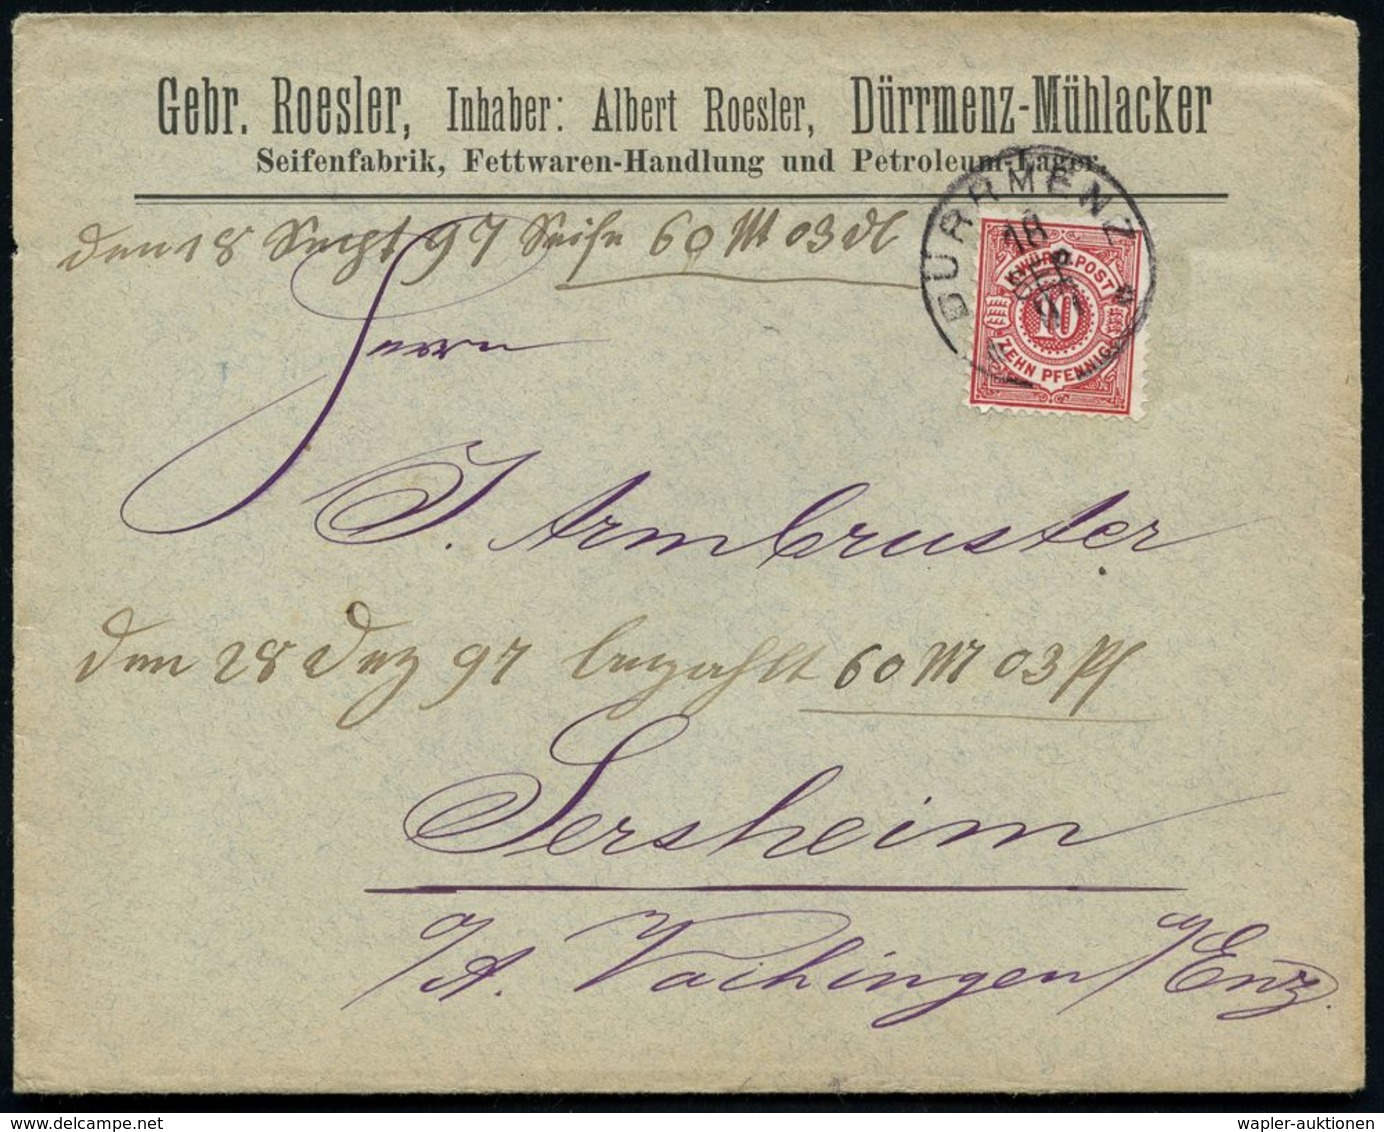 Gebr. Roesler, Inhaber: Albert Roesler, Dürrmenz-Mühlacker
Seifenfabrik, Fettwaren-Handlung und Petroleum-Lager.
DÜRRMENZ
18
SEP
den 18 Sept 97 Seife 60 M 03 Pf
K. WÜRTT. POST
10
ZEHN PFENNIG
Herrn
J. Armbruster
den 28 Dez 97 bezahlt 60 M 03 Pf
Sersheim
O/A. Vaihingen a/Enz.
wapler-auktionen